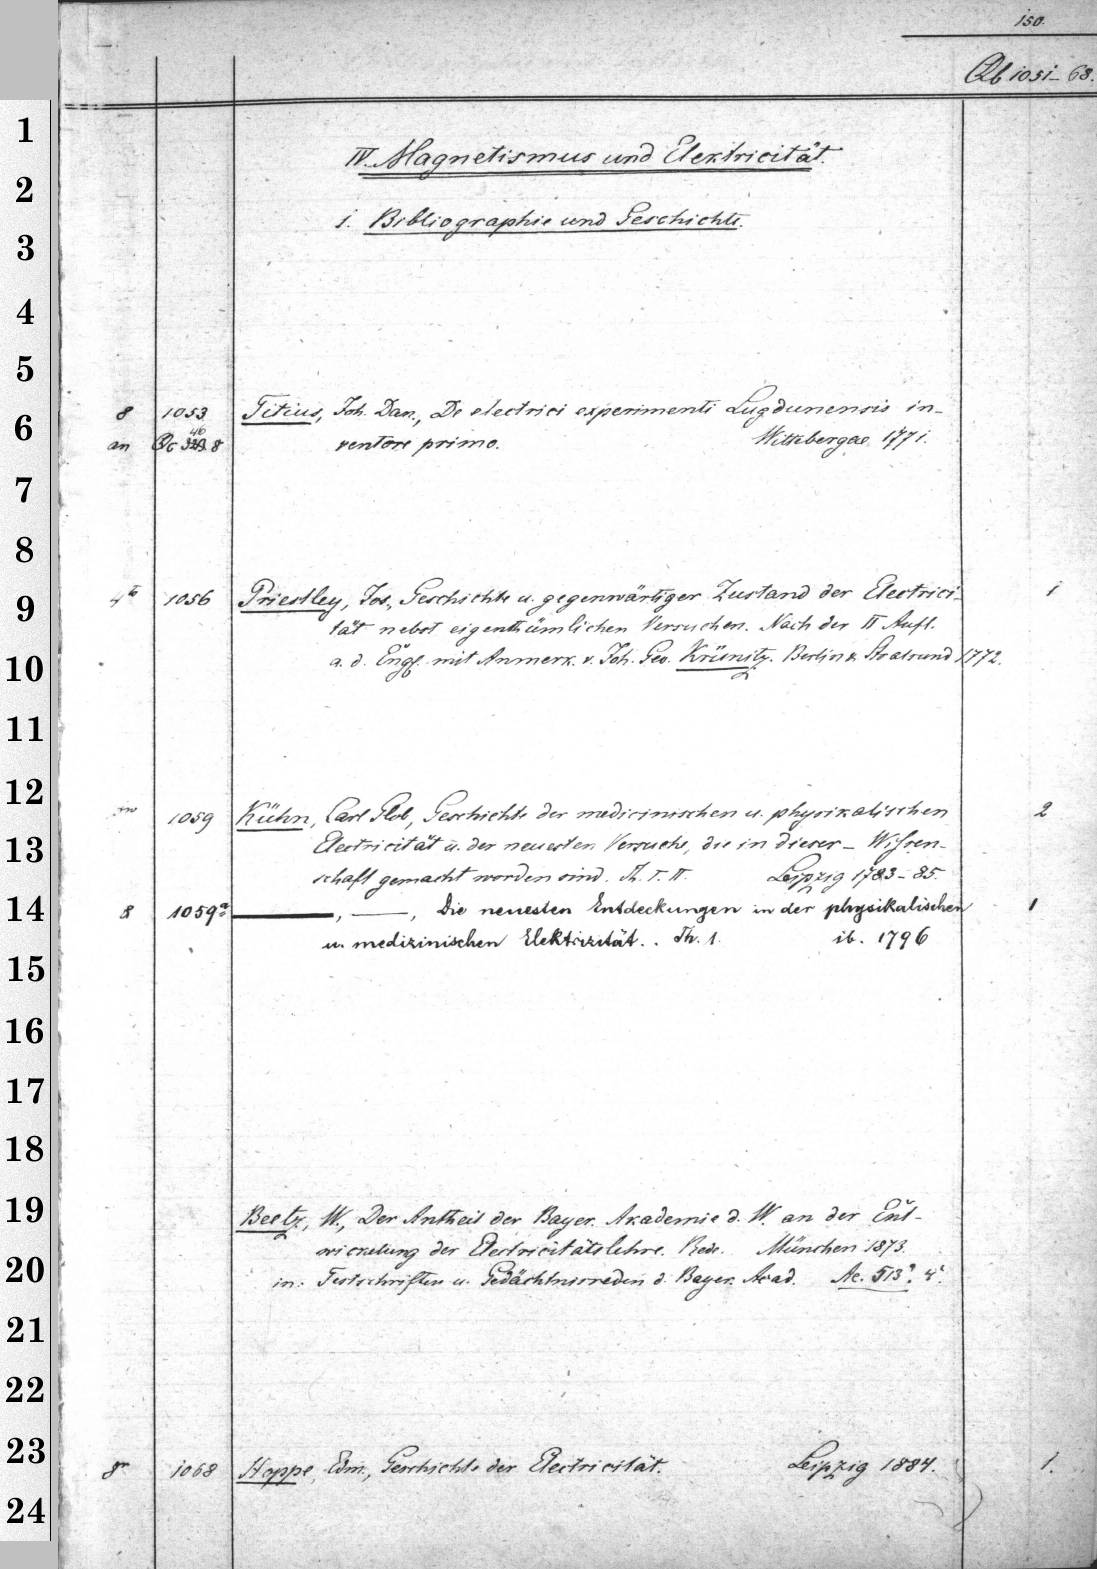 150.
Qb 1051-68.
IV. Magnetismus und Elektricität.
1. Bibliographie und Geschichte.
8 1053 Titius, Joh. Dan., De electrici experimenti Lugdunensis in-
46
an Qc 8 ventore primo. Wittebergae 1771.
4to 1056 Priestley, Jos., Geschichte u. gegenwärtiger Zustand der Electrici- 1
tät nebst eigenthümlichen Versuchen. Nach der II Aufl.
a. d. Engl. mit Anmerk. v. Joh. Geo. Krünitz. Berlin & Stralsund 1772.
1059 Kühn, Carl Glob, Geschichte der medicinischen u. physikalischen 2
Electricität u. der neuesten Versuche, die in dieser - Wissen-
schaft gemacht worden sind. Th. I. II. Leipzig 1783-85.
8 1059a ——, ——, Die neuesten Entdeckungen in der physikalischen 1
u. medizinischen Elektrizität. . Th. 1. ib. 1796
Beetz, W., Der Antheil der Bayer. Akademie d. W. an der Ent-
wickelung der Electricitätslehre. Rede. München 1873.
in: Festschriften u. Gedächtnissreden d. Bayer. Acad. Ac. 513a. 4°.
8° 1068 Hoppe, Edm., Geschichte der Electricität. Leipzig 1884. 1.
1
2
3
4
5
6
7
8
9
10
11
12
13
14
15
16
17
18
19
20
21
22
23
24